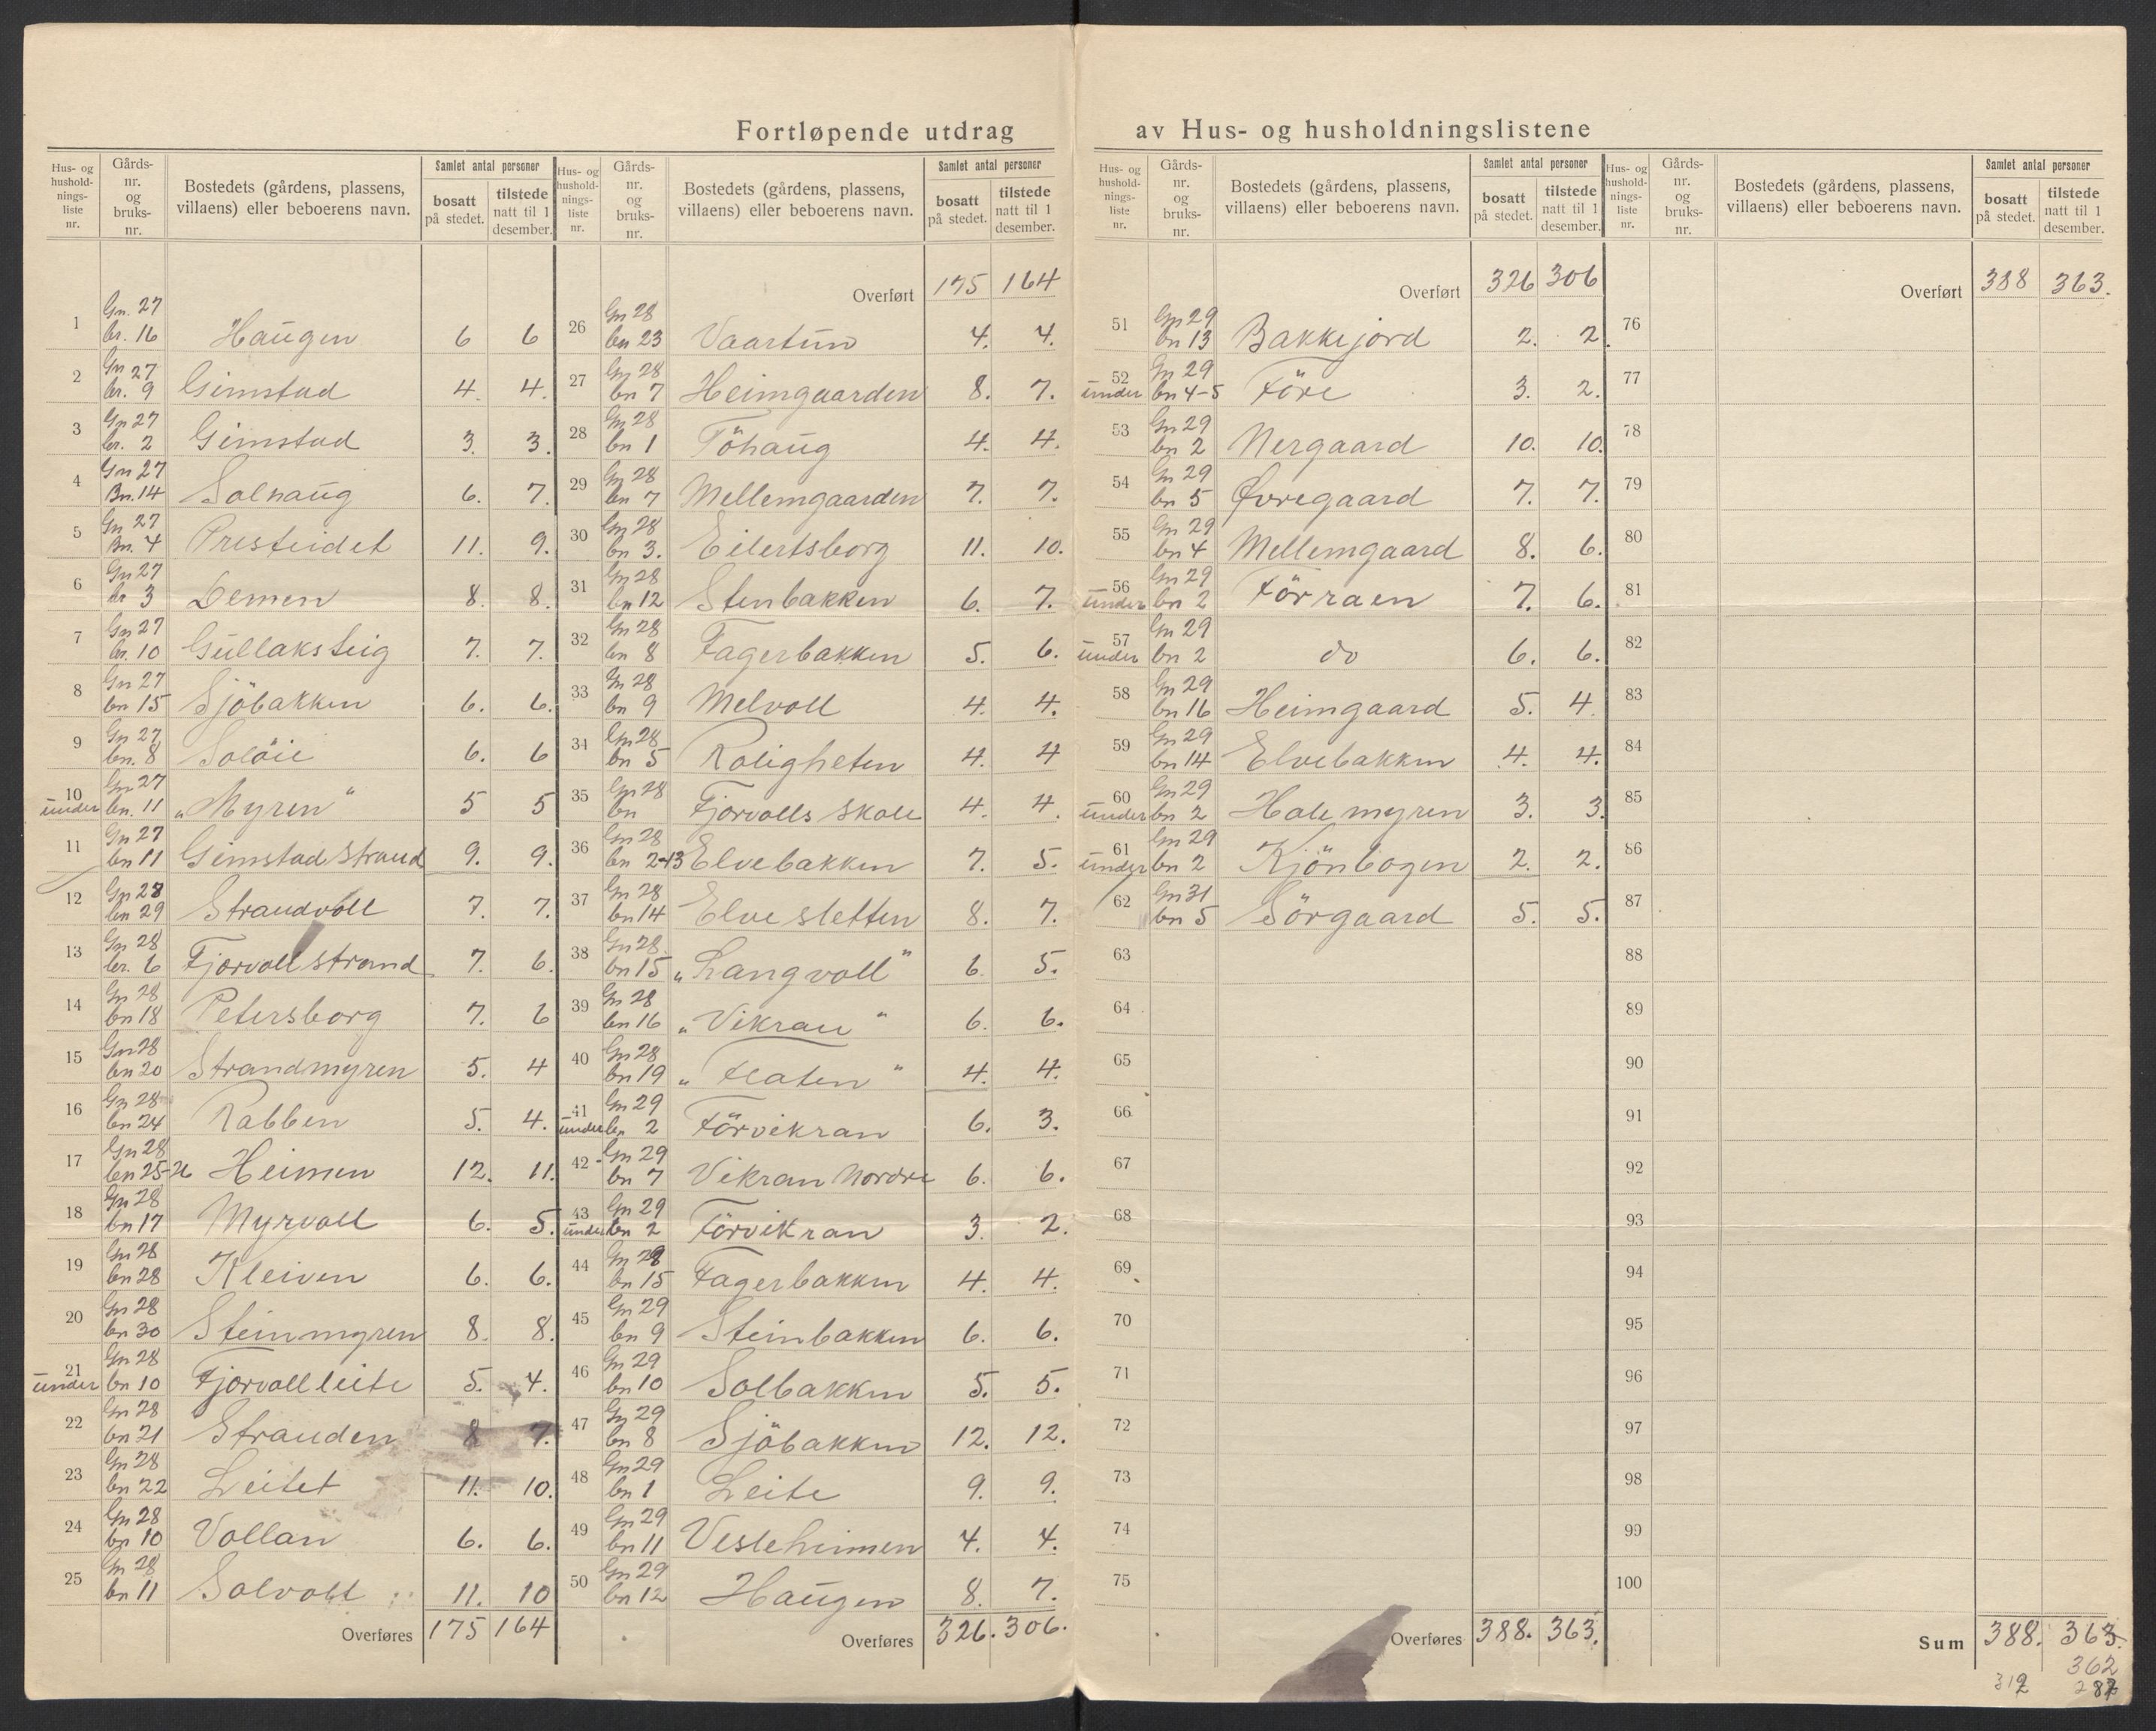 Fortløpende utdrag av Hus- og husholdningslistene
Hus- og husholdnings-liste nr. Gårds-nr. og bruks-nr. Bostedets (gårdens, plassens, villaens) eller beboerens navn. Samlet antal personer bosatt på stedet. tilstede natt til 1 desember.
1 Gn. 27 br. 16 Haugen 6 6
2 Gn 27 br. 9 Gimstad 4. 4.
3 Gn 27 br. 2 Gimstad 3. 3.
4 Gn 27 Bn. 14 Solhaug 6. 7.
5 Gn 27 Bn. 4 Presteidet 11. 9.
6 Gn 27 br 3 Lemen 8. 8.
7 Gn 27 br. 10 Gullaksteig 7. 7.
8 Gn 27 bn 15 Sjöbakken 6. 6.
9 Gn 27 bn. 8 Soløie 6. 6
10 under Gn 27 bn. 11 „Myren" 5 5
11 Gn 27 bn 11 Gimstadstrand 9. 9.
12 Gn 28 bn 29 Strandvoll 7. 7.
13 Gn 28 br. 6 Fjorvollstrand 7. 6.
14 Gn 28 bn 18 Petersborg 7. 6
15 Gn 28 bn 20 Strandmyren 5. 4
16 Gn 28 bn 24 Rabben 5. 4.
17 Gn 28 bn 25-26 Heimen 12. 11.
18 Gn 28 bn 17 Myrvoll 6. 5.
19 Gn 28 bn 28 Kleiven 6. 6.
20 Gn 28 bn 30 Steinmyren 8. 8.
21 under Gn 28 bn 10 Fjorvollleite 5. 4.
22 Gn 28 bn 21 Stranden 8 7.
23 Gn 28 bn 22 Leitet 11. 10.
24 Gn 28 bn 10 Vollan 6. 6.
25 Gn 28 bn 11 Solvoll 11. 10
Overføres 175 164
Hus- og husholdnings-liste nr. Gårds-nr. og bruks-nr. Bostedets (gårdens, plassens, villaens) eller beboerens navn. Samlet antal personer bosatt på stedet. tilstede natt til 1 desember.
Overført 175 164
26 Gn 28 bn 23 Vaartun 4. 4.
27 Gn 28 bn 7 Heimgaarden 8. 7.
28 Gn 28 bn 1 Töhaug 4. 4.
29 Gn 28 bn 7 Mellemgaarden 7. 7.
30 Gn 28 bn 3. Eilertsborg 11. 10.
31 Gn 28 bn 12 Stenbakken 6. 7.
32 Gn 28 bn 8 Fagerbakken 5. 6.
33 Gn 28 bn 9 Melvoll 4. 4.
34 Gn 28 bn 5 Roligheten 4. 4
35 Gn 28 bn Fjorvolls skole 4. 4.
36 Gn 28 bn 2-13 Elvebakken 7. 5.
37 Gn 28 bn 14 Elvesletten 8. 7.
38 Gn 28. bn 15 „Langvoll" 6. 5.
39 Gn 28 bn 16 „Vikran" 6. 6.
40 Gn 28 bn 19 „Flaten" 4. 4.
41 under Gn 29 bn 2 Förvikran 6. 3.
42 Gn 29 bn 7 Vikran Nordre 6. 6.
43 under Gn 29 bn 2 Förvikran 3. 2.
44 Gn 29 bn 15 Fagerbakken 4. 4.
45 Gn 29 bn 9 Steinbakken 6. 6.
46 Gn 29 bn 10 Solbakken 5. 5.
47 Gn 29 bn 8 Sjöbakken 12. 12.
48 Gn 29 bn 1 Leite 9. 9.
49 Gn 29 bn 11 Vesleheimen 4. 4.
50 Gn 29 bn 12 Haugen 8. 7.
Overføres 326. 306.
Hus- og husholdnings-liste nr. Gårds-nr. og bruks-nr. Bostedets (gårdens, plassens, villaens) eller beboerens navn. Samlet antal personer bosatt på stedet. tilstede natt til 1 desember.
Overført 326 306
51 Gn 29 bn 13 Bakkejord 2. 2.
52 under Gn 29 bn 4-5 Före 3. 2.
53 Gn 29 bn 2 Nergaard 10. 10.
54 Gn 29 bn 5 Øvregaard 7. 7.
55 Gn 29 bn 4 Mellemgaard 8. 6.
56 under Gn 29 bn 2 Förraen 7. 6.
57 under Gn 29 bn 2 do 6. 6.
58 Gn 29 bn 16 Heimgaard 5. 4.
59 Gn 29 bn 14 Elvebakken 4. 4.
60 under Gn 29 bn 2 Holemyren 3. 3.
61 under Gn 29 bn 2 Kjönbogen 2. 2.
62 Gn 31 bn 5 Sörgaard 5. 5.
63
64
65
66
67
68
69
70
71
72
73
74
75
Overføres 388. 363.
Hus- og husholdnings-liste nr. Gårds-nr. og bruks-nr. Bostedets (gårdens, plassens, villaens) eller beboerens navn. Samlet antal personer bosatt på stedet. tilstede natt til 1 desember.
Overført 388 363.
76
77
78
79
80
81
82
83
84
85
86
87
88
89
90
91
92
93
94
95
96
97
98
99
100
Sum 388. 363.
362
312